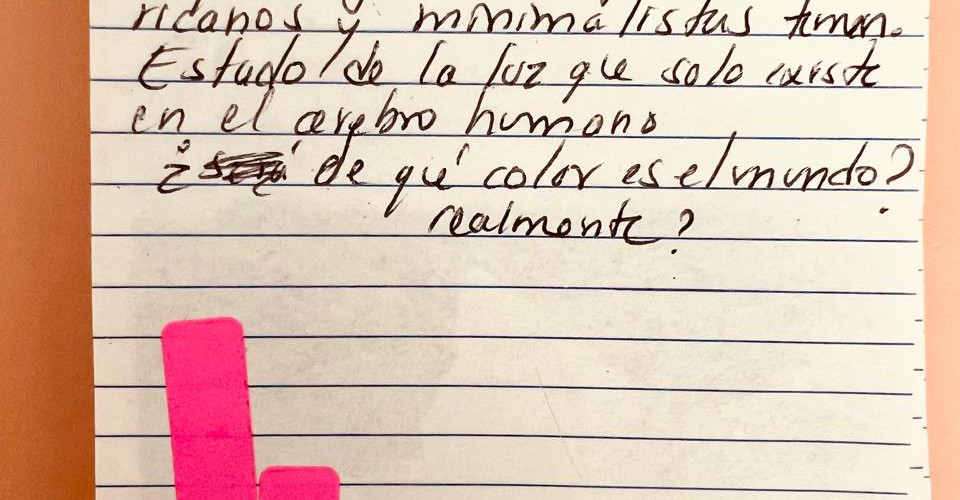 ricanos y minimalistas
Estado de la luz que solo existe
en el cerebro humano
¿ de qué color es el mundo?
realmente?